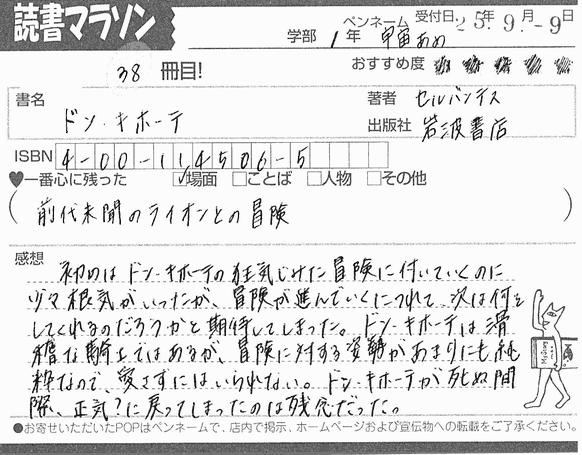 読書マラソン
学部 1年 ペンネーム 甲宙あめ 受付日:25年 9.月-9日
38 冊目!
おすすめ度
書名 ドン・キホーテ
著者 セルバンテス
出版社 岩波書店
ISBN 4-00-114506-5
♥一番心に残った ☑場面 □ことば □人物 □その他
(前代未聞のライオンとの冒険)
感想
初めはドン・キホーテの狂気じみた冒険に付いていくのに
少々根気がいったが、冒険が進んでいくにつれて、次は何を
してくれるのだろうかと期待してしまった。ドン・キホーテは滑
稽な騎士ではあるが、冒険に対する姿勢があまりにも純
粋なので、愛さずにはいられない。ドン・キホーテが死ぬ間
際、正気?に戻ってしまったのは残念だった。
●お寄せいただいたPOPはペンネームで、店内で掲示、ホームページおよび宣伝物への転載をご了承ください。